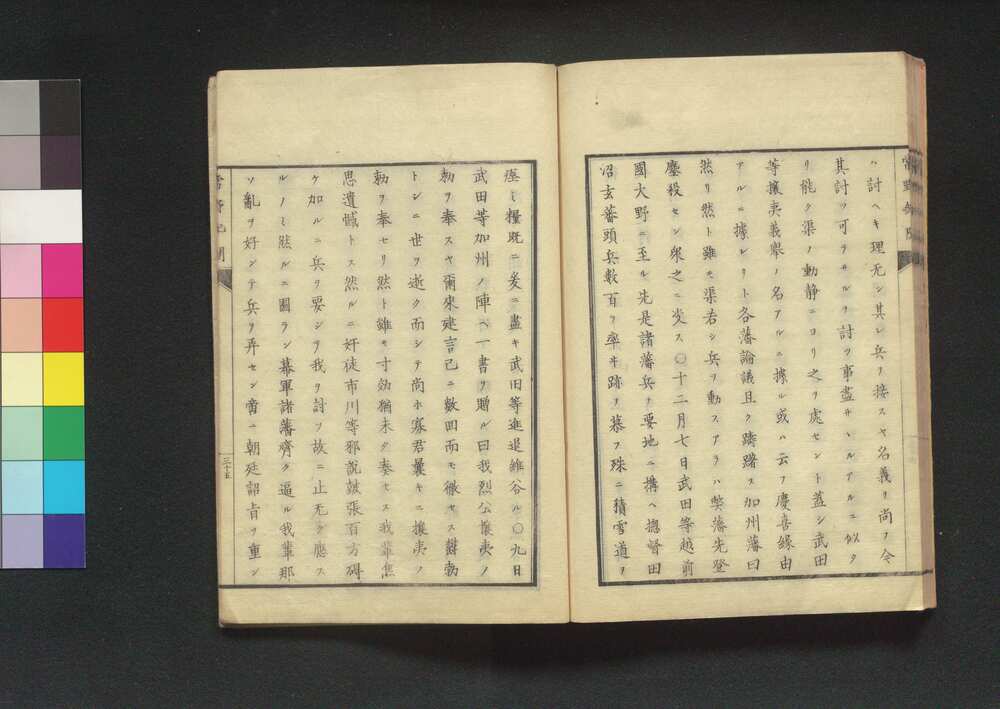 ハ討ヘキ理无シ其レ兵ヲ接スヤ名義ヲ尚フ今
其討ツ可ラサルヲ討ツ事盡サヽルアルニ似タ
リ能ク渠ノ動静ニヨリ之ヲ處セント蓋シ武田
等攘夷義擧ノ名アルニ據ル或ハ云フ慶喜縁由
アルニ據レリト各藩論議且ク躊躇ス加州藩曰
然リ然ト雖モ渠若シ兵ヲ動スアラハ弊藩先登
鏖殺セン衆之ニ决ス〇十二月七日武田等越前
國大野ニ至ル先是諸藩兵ヲ要地ニ搆ヘ揔督田
沼玄蕃頭兵數百ヲ率ヰ跡ヲ慕フ殊ニ積雪道ヲ
塞ミ糧既ニ爰ニ盡キ武田等進退維谷ル〇九日
武田等加州ノ陣ヘ一書ヲ贈ル曰我烈公攘夷ノ
勅ヲ奉スヤ爾來建言已ニ數回而モ徹セス齎勅
トシニ世ヲ逝ク而シテ尚ホ寡君曩キニ攘夷ノ
勅ヲ奉セリ然ト雖モ寸効猶未タ奏セス我輩焦
思遺憾トス然ルニ奸徒市川等邪説皷張百方碍
ケ加ルニ兵ヲ要シヲ我ヲ討ツ故ニ止无ク應ス
ルノミ然ルニ圖ラン幕軍諸藩齊ク逼ル我輩那
ソ亂ヲ好ンテ兵ヲ弄セン啻ニ朝廷詔旨ヲ重ン
三十五